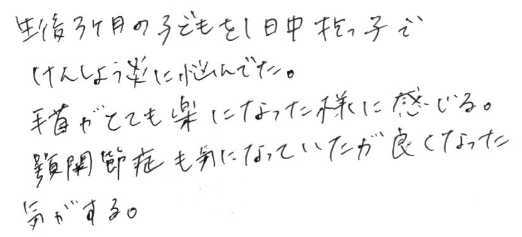 生後3ヶ月の子どもを1日中抱っ子で
けんしょう炎に悩んでた。
手首がとても楽になった様に感じる。
顎関節症も気になっていたが良くなった
気がする。